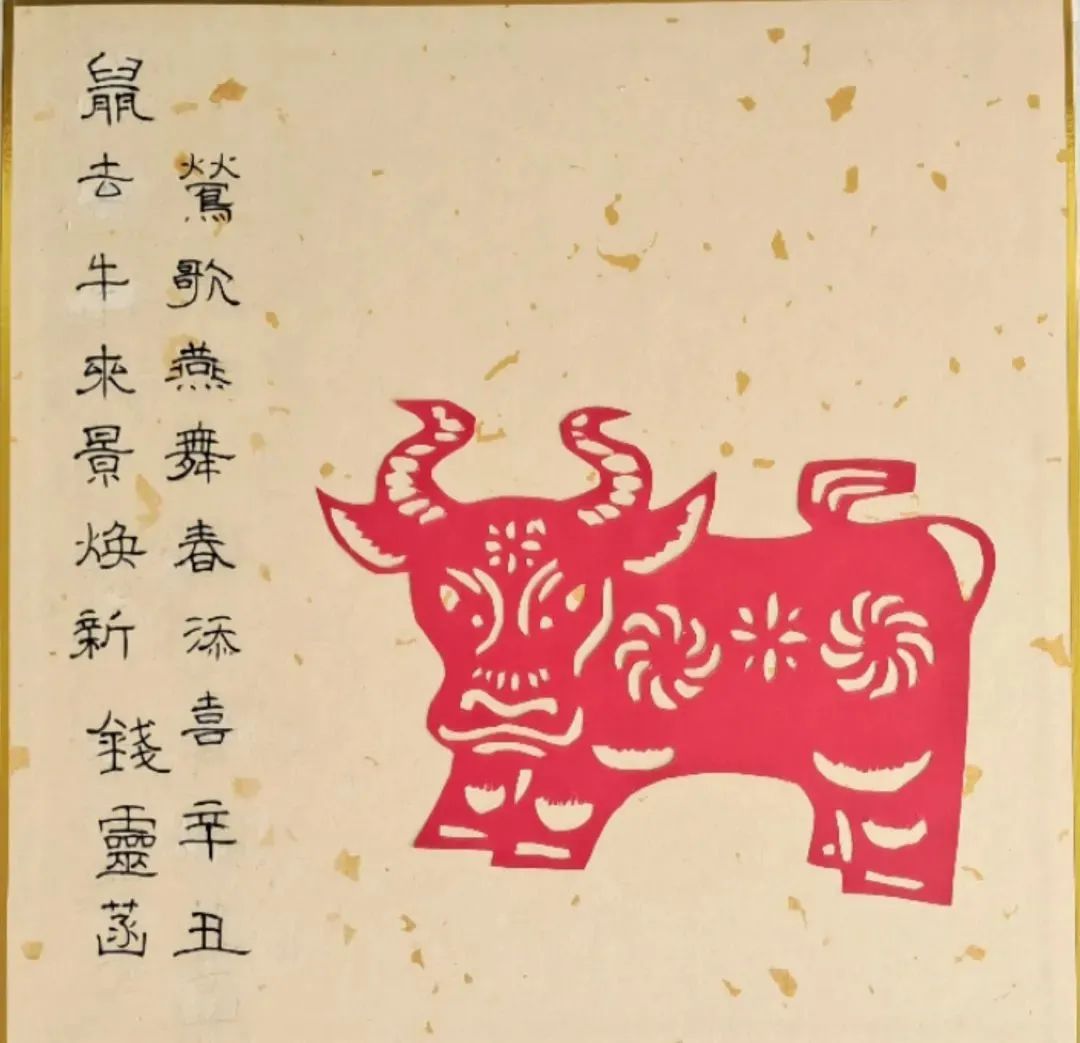 鶯歌燕舞春添喜辛丑
鼠去牛來景煥新 錢靈菡